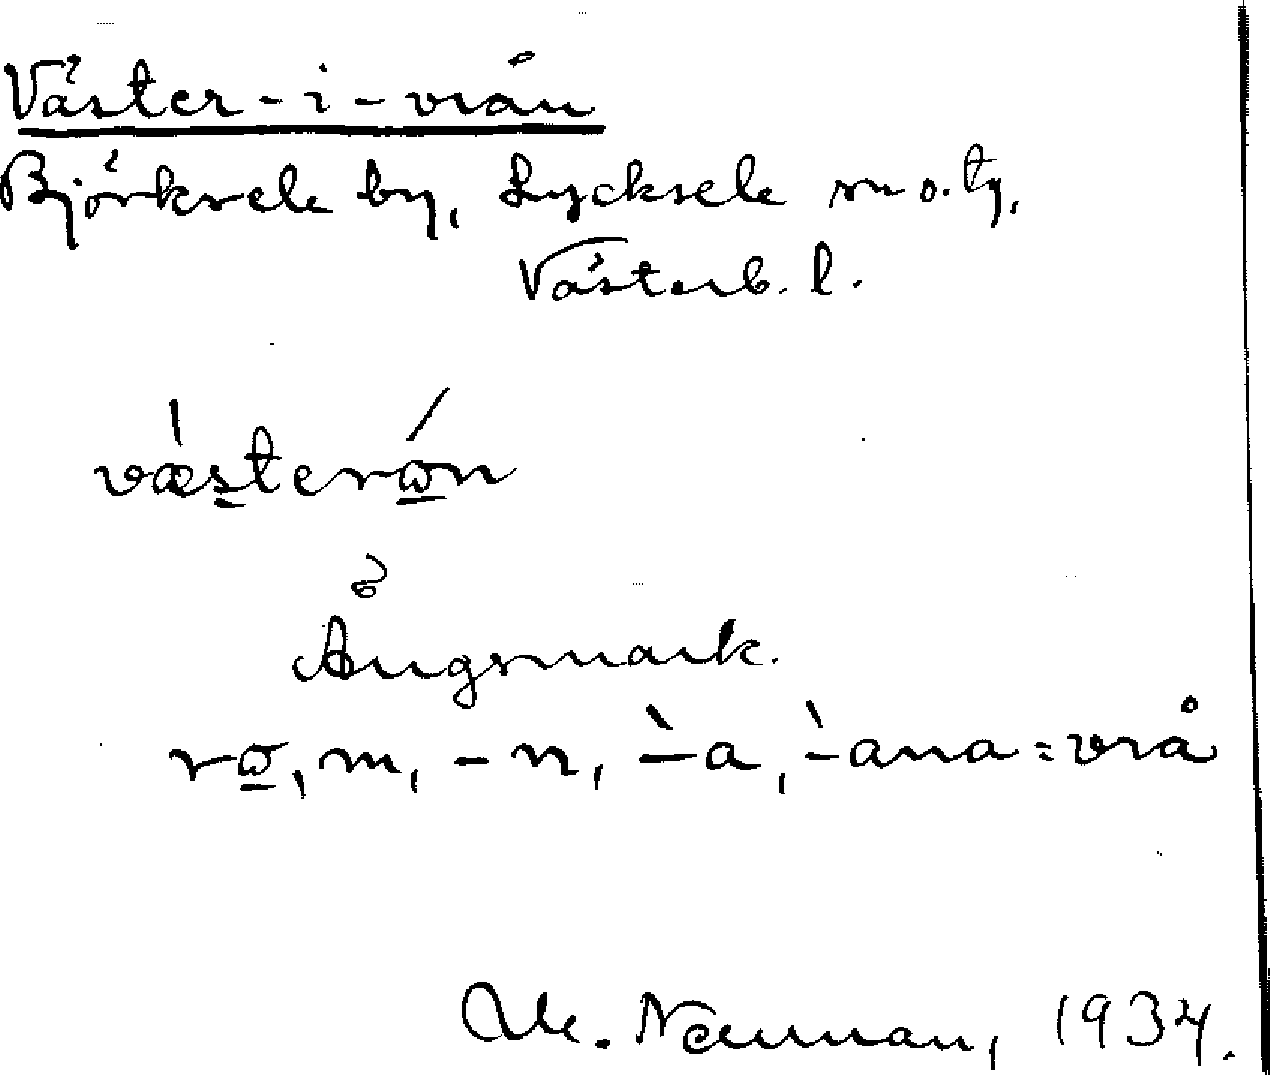 Väster-i-vrån
Björksele by, Lycksele sn o. tg,
Västerb. l.
væsterωn
Ängsmark.
rω, m, -n, -̀a, -̀ana = vrå
Nauman, 1934.